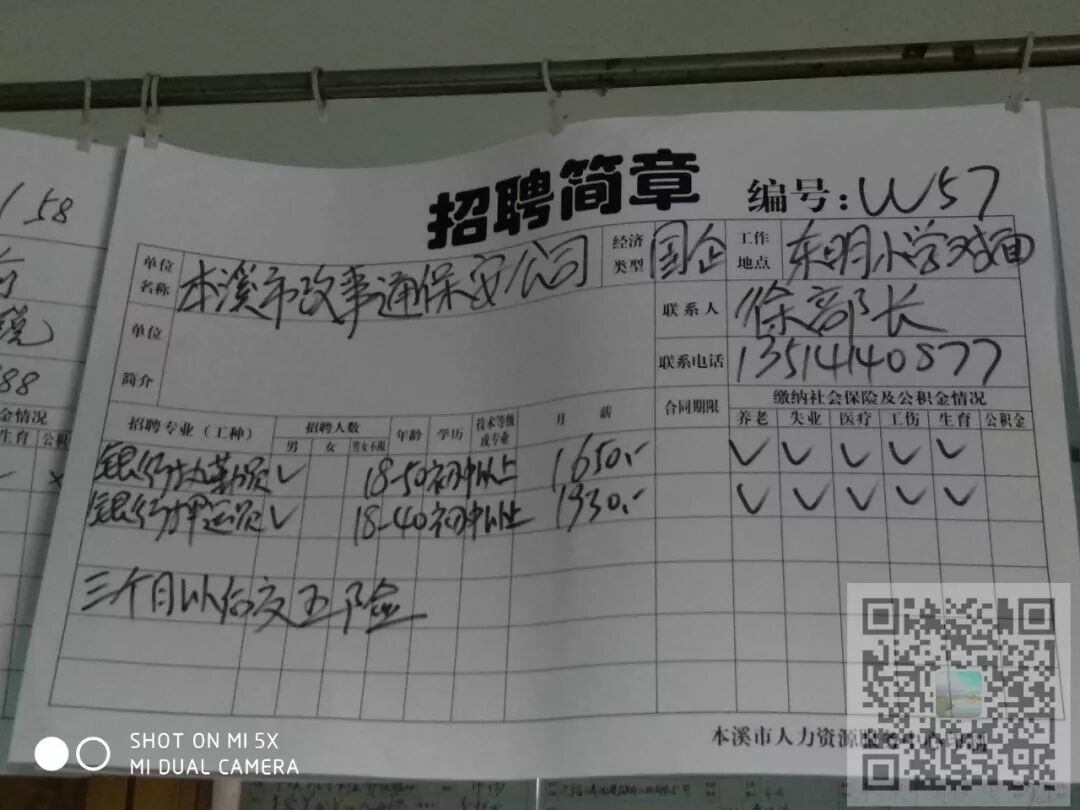 招聘简章
编号：W57
单位名称 本溪市政事通保安公司 经济类型 国企 工作地点 东明小学对面
单位简介 联系人 徐部长
联系电话 13514140877
招聘专业（工种） 招聘人数 年龄 学历 技术等级或专业 月薪 合同期限 缴纳社会保险及公积金情况
男 女 男女不限 养老 失业 医疗 工伤 生育 公积金
银行 ✓ 18-50 初中以上 1650.- ✓ ✓ ✓ ✓ ✓
银行押运员 ✓ 18-40 初中以上 1930.- ✓ ✓ ✓ ✓ ✓
三个月以后交五险
本溪市人力资源
158
88
金情况
生育 公积
SHOT ON MI 5X
MI DUAL CAMERA